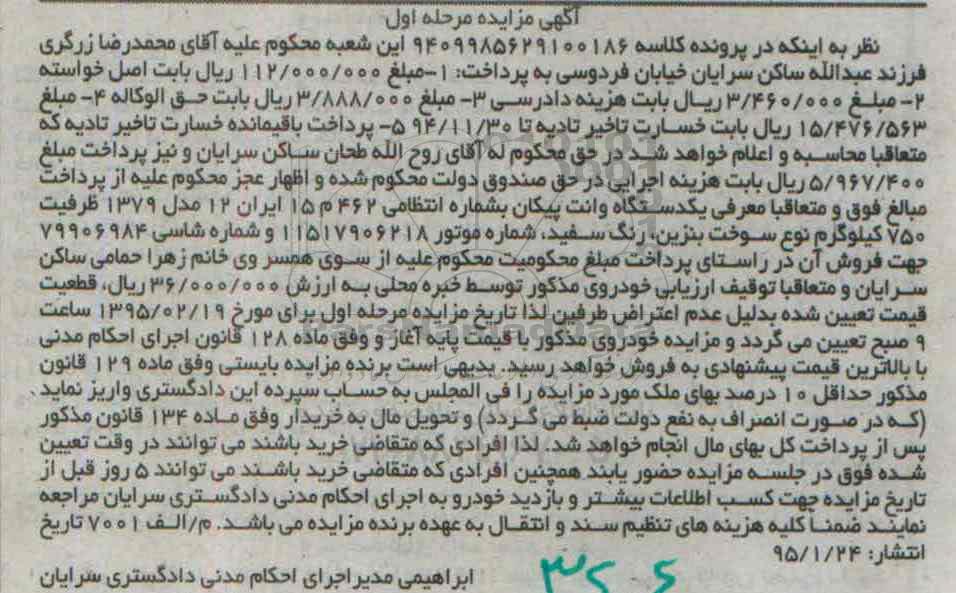 آگهی مزایده مرحله اول
نظر به اینکه در پرونده کلاسه ۹۴۰۹۹۸۵۶۲۹۱۰۰۱۸۶ این شعبه محکوم علیه آقای محمدرضا زرگری
فرزند عبدالله ساکن سرایان خیابان فردوسی به پرداخت: ۱-مبلغ ۱۱۲/۰۰۰/۰۰۰ ریال بابت اصل خواسته
۲- مبلغ ۳/۴۶۰/۰۰۰ ریال بابت هزینه دادرسی ۳- مبلغ ۳/۸۸۸/۰۰۰ ریال بابت حق الوکاله ۴- مبلغ
۱۵/۴۷۶/۵۶۳ ریال بابت خسارت تاخیر تادیه تا ۹۴/۱۱/۳۰ ۵- پرداخت باقیمانده خسارت تاخیر تادیه که
متعاقبا محاسبه و اعلام خواهد شد در حق محکوم له آقای روح الله طحان ساکن سرایان و نیز پرداخت مبلغ
۵/۹۶۷/۴۰۰ ریال بابت هزینه اجرایی در حق صندوق دولت محکوم شده و اظهار عجز محکوم علیه از پرداخت
مبالغ فوق و متعاقبا معرفی یکدستگاه وانت پیکان بشماره انتظامی ۴۶۲ م ۱۵ ایران ۱۲ مدل ۱۳۷۹ ظرفیت
۷۵۰ کیلوگرم نوع سوخت بنزین، رنگ سفید، شماره موتور ۱۱۵۱۷۹۰۶۲۱۸ و شماره شاسی ۷۹۹۰۶۹۸۴
جهت فروش آن در راستای پرداخت مبلغ محکومیت محکوم علیه از سوی همسر وی خانم زهرا حمامی ساکن
سرایان و متعاقبا توقیف ارزیابی خودروی مذکور توسط خبره محلی به ارزش ۳۶/۰۰۰/۰۰۰ ریال، قطعیت
قیمت تعیین شده بدلیل عدم اعتراض طرفین لذا تاریخ مزایده مرحله اول برای مورخ ۱۳۹۵/۰۲/۱۹ ساعت
۹ صبح تعیین می گردد و مزایده خودروی مذکور با قیمت پایه آغاز و وفق ماده ۱۲۸ قانون اجرای احکام مدنی
با بالاترین قیمت پیشنهادی به فروش خواهد رسید. بدیهی است برنده مزایده بایستی وفق ماده ۱۲۹ قانون
مذکور حداقل ۱۰ درصد بهای ملک مورد مزایده را فی المجلس به حساب سپرده این دادگستری واریز نماید
(که در صورت انصراف به نفع دولت ضبط می گردد) و تحویل مال به خریدار وفق ماده ۱۳۴ قانون مذکور
پس از پرداخت کل بهای مال انجام خواهد شد. لذا افرادی که متقاضی خرید باشند می توانند در وقت تعیین
شده فوق در جلسه مزایده حضور یابند همچنین افرادی که متقاضی خرید باشند می توانند ۵ روز قبل از
تاریخ مزایده جهت کسب اطلاعات بیشتر و بازدید خودرو به اجرای احکام مدنی دادگستری سرایان مراجعه
نمایند ضمنا کلیه هزینه های تنظیم سند و انتقال به عهده برنده مزایده می باشد. م/الف ۷۰۰۱ تاریخ
انتشار: ۹۵/۱/۲۴
ابراهیمی مدیر اجرای احکام مدنی دادگستری سرایان